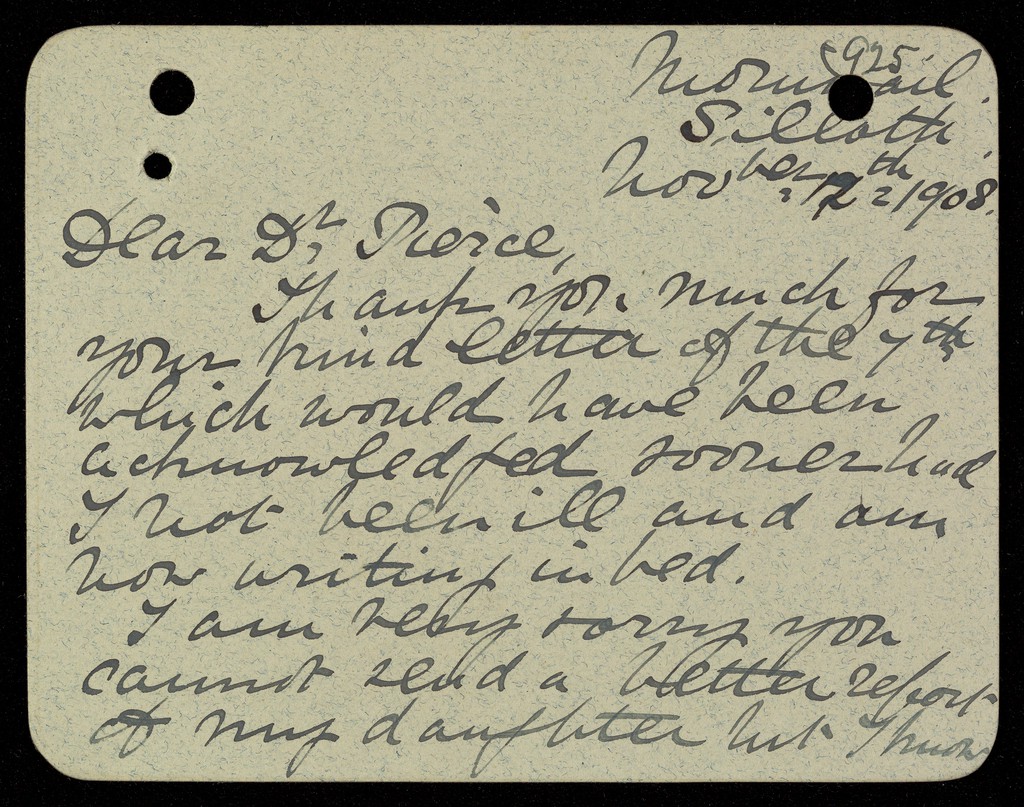 925
Silloth.
Novber 12th 1908.
Dear Dr. Pierce,
Thank you much for
your kind letter of the 7th
which would have been
acknowledged sooner had
I not been ill and am
now writing in bed.
I am very sorry you
cannot send a better report
of my daughter but I know